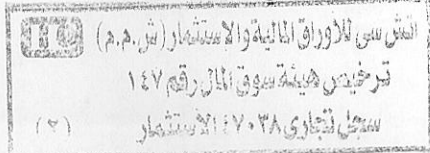 اتش سي للأوراق المالية والاستثمار (ش.م.م)
ترخيص هيئة سوق المال رقم ١٤٧
سجل تجاري ٤٧٠٣٨ الاستثمار (٢)